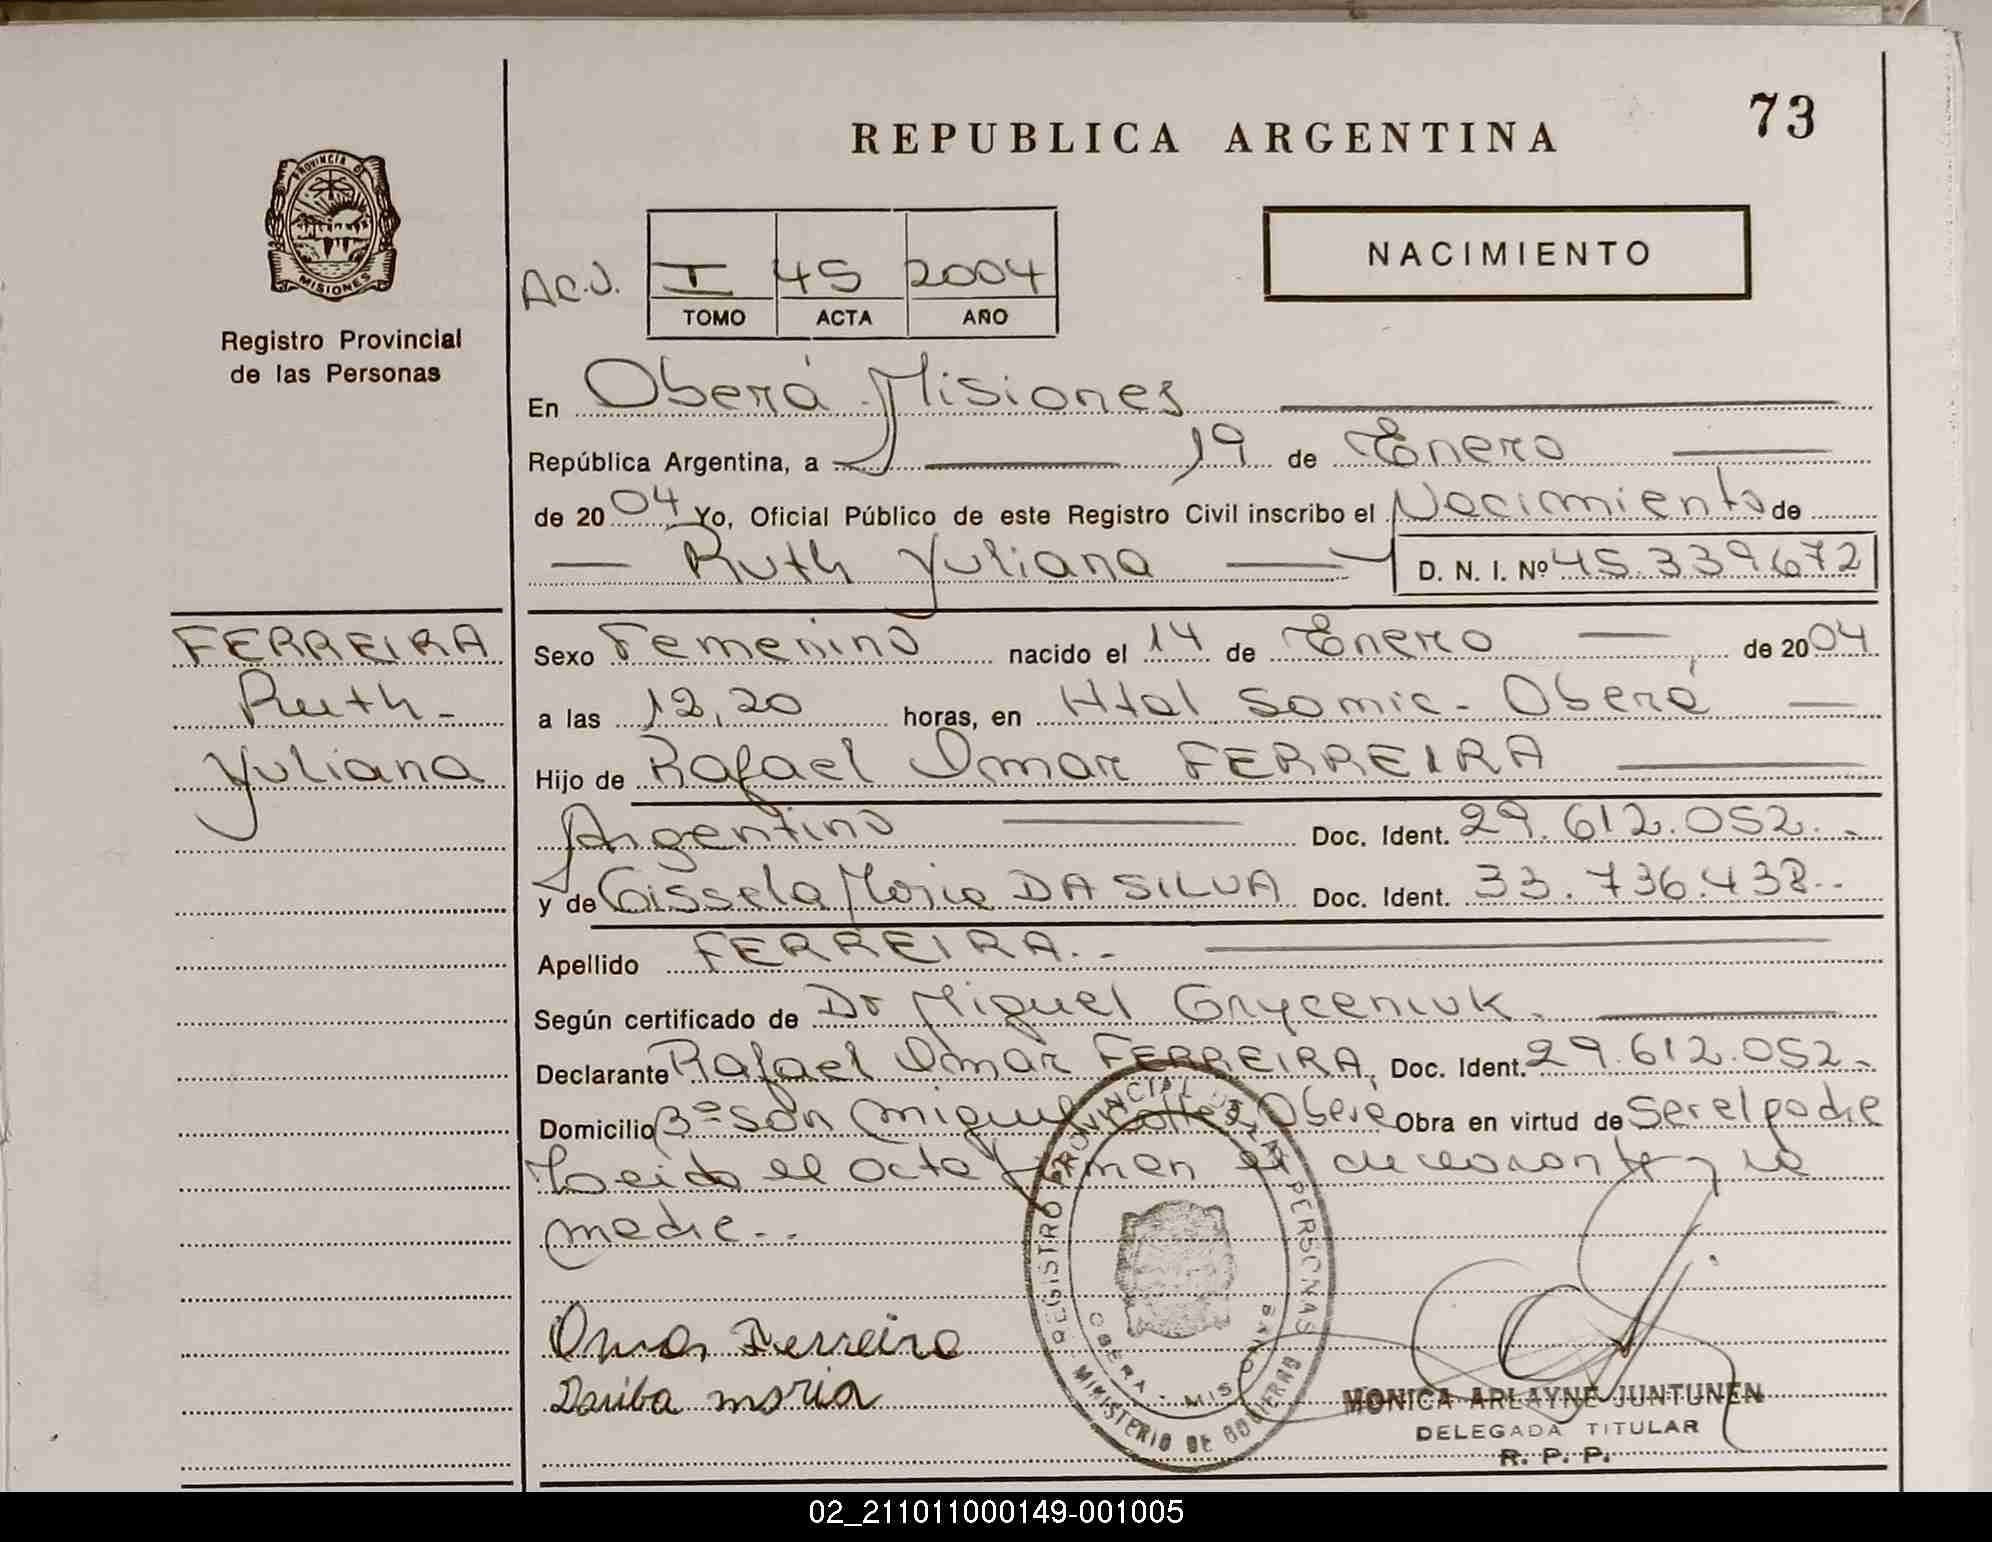 73
REPUBLICA ARGENTINA
PROVINCIA DE
MISIONES
Registro Provincial
de las Personas
NACIMIENTO
Ac.J. I 45 2004
TOMO ACTA AÑO
En Oberá Misiones
República Argentina, a 19 de Enero
de 2004 Yo, Oficial Público de este Registro Civil inscribo el Nacimiento de
Ruth Yuliana D. N. I. Nº 45.339.672
FERREIRA
Ruth-
Yuliana
Sexo Femenino nacido el 14 de Enero de 2004
a las 12,20 horas, en Htal Samic- Oberá
Hijo de Rafael Omar FERREIRA
Argentino Doc. Ident. 29.612.052.-
y de Gissela Maria DA SILVA Doc. Ident. 33.736.438.-
Apellido FERREIRA.-
Según certificado de Dr Miguel Gryceniuk.
Declarante Rafael Omar FERREIRA, Doc. Ident. 29.612.052.
Domicilio Bº San Miguel Oberá Obra en virtud de ser el padre
Leida el acta firman el declarante y la
madre.-
Omar Ferreira
maria
REGISTRO PROVINCIAL DE LAS PERSONAS
OBERA - MISIONES
MINISTERIO DE GOBIERNO
MONICA ARLAYNE JUNTUNEN
DELEGADA TITULAR
R. P. P.
02_211011000149-001005